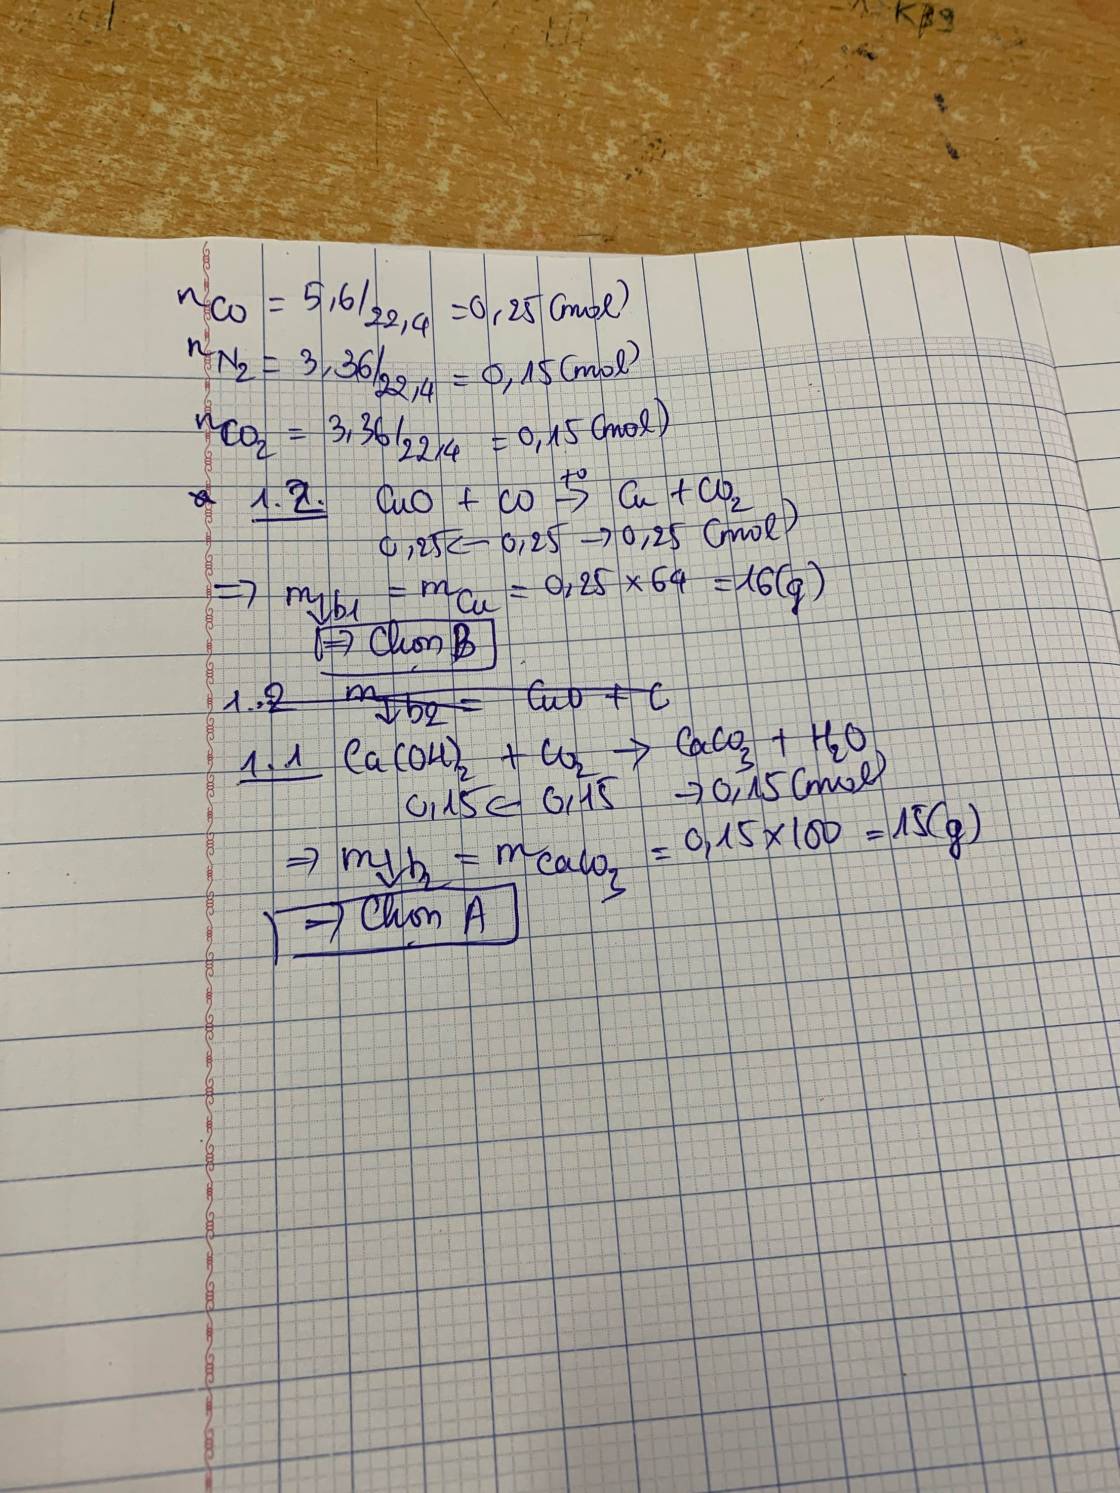 KB9
nCO = 5,6/22,4 = 0,25 (mol)
nN2 = 3,36/22,4 = 0,15 (mol)
nCO2 = 3,36/22,4 = 0,15 (mol)
1.2. CuO + CO →t° Cu + CO2
0,25 ← 0,25 → 0,25 (mol)
=> m↓b1 = mCu = 0,25 × 64 = 16(g)
=> Chọn B
1.2 m↓b2 = CuO + C
1.1 Ca(OH)2 + CO2 → CaCO3 + H2O
0,15 ← 0,15 → 0,15 (mol)
=> m↓b2 = mCaCO3 = 0,15 × 100 = 15(g)
=> Chọn A